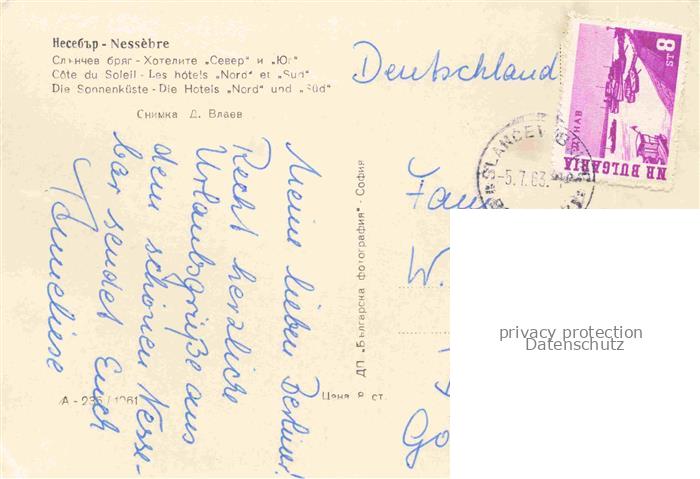 Несебър - Nessèbre
Слънчев бряг - Хотелите „Север" и „Юг"
Côte du Soleil - Les hôtels „Nord" et „Sud"
Die Sonnenküste - Die Hotels „Nord" und „Süd"
Снимка Д. Влаев
Deutschland
8 ST
ДУНАВ
NR BULGARIA
SLANCEV
-5.7.63.
Meine lieben Berliner!
Recht herzliche
Urlaubsgrüße aus
dem schönen Nesse-
bar sendet Euch
Anneliese
ДП „Българска фотография" - София
Fam
W.
privacy protection
Datenschutz
А - 235 / 1961
Цена 8 ст.